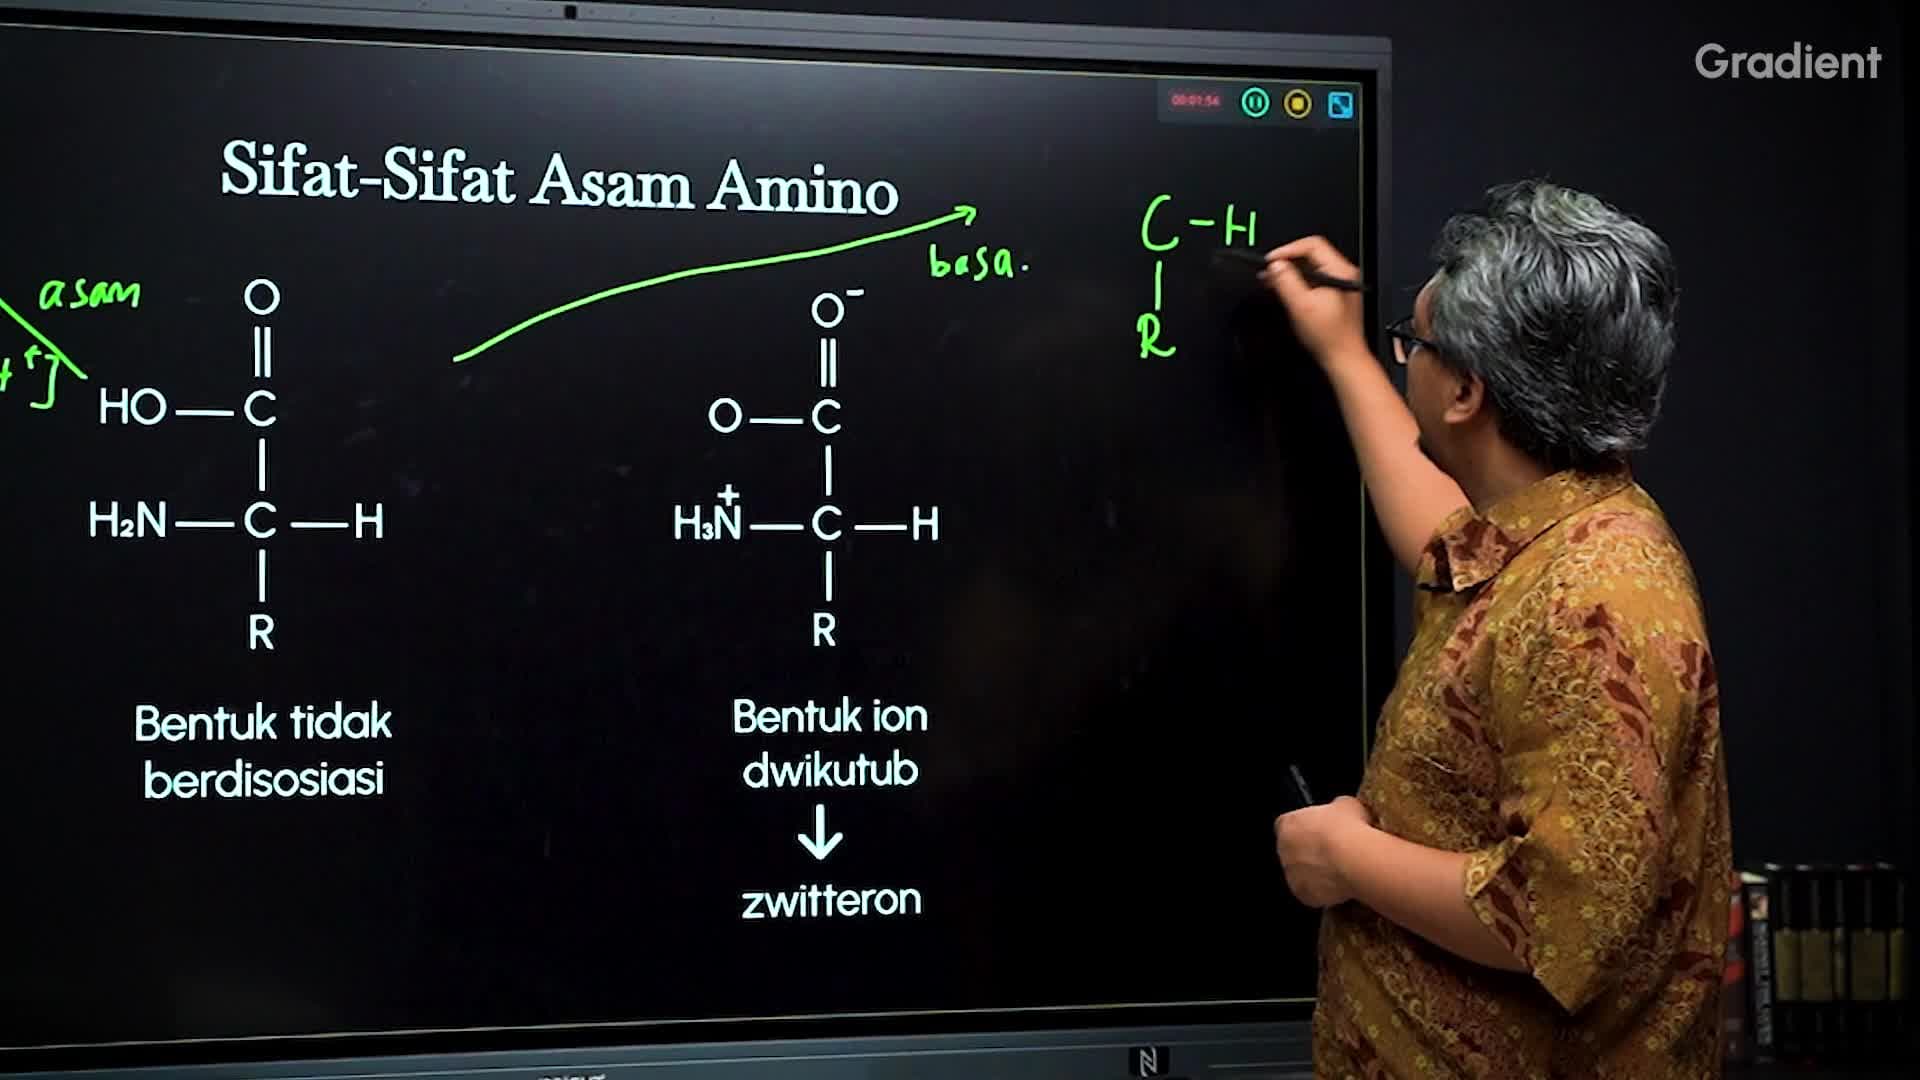 Gradient
00:01:54
Sifat-Sifat Asam Amino
asam
+]
O
HO — C
H₂N — C — H
R
Bentuk tidak
berdisosiasi
basa.
O⁻
O — C
H₃N⁺ — C — H
R
Bentuk ion
dwikutub
↓
zwitteron
C – H
R